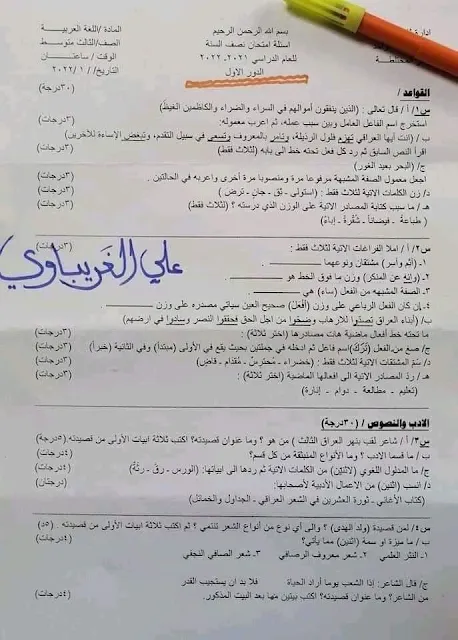 بسم الله الرحمن الرحيم
اسئلة امتحان نصف السنة
للعام الدراسي ٢٠٢١ـ ٢٠٢٢
الدور الاول
المادة /اللغة العربيـــة
الصف/الثالث متوسط
الوقت / ساعتــان
التاريخ/ / ١ /٢٠٢٢
القواعد / (٣٠درجة)
س١/ أ / قال تعالى : (الذين ينفقون أموالهم في السراء والضراء والكاظمين الغيظ)
استخرج اسم الفاعل العامل وبين سبب عمله، ثم اعرب معموله. (٣درجات)
ب / (انت أيها العراقي تهزم فلول الرذيلة، وتأمر بالمعروف وتسعى في سبيل التقدم، وتبغض الإساءة للآخرين)
اقرأ النص السابق ثم رد كل فعل تحته خط الى بابه (لثلاث فقط) (٣درجات)
ج/ (البحر بعيد الغور)
اجعل معمول الصفة المشبهة مرفوعا مرة ومنصوبا مرة أخرى واعربه في الحالتين. (٣درجات)
د/ زن الكلمات الاتية لثلاث فقط : (استولى ـ ثق ـ جانٍ ـ ترض ) (٣درجات)
هـ / ما سبب كتابة المصادر الاتية على الوزن الذي درسته ؟ (لثلاث فقط)
( طباعة ـ فيضانا ـ شُقْرة ـ إباءً) (٣درجات)
س٢/ أ / املا الفراغات الاتية لثلاث فقط : (٣درجات)
علي الغريباوي
١ـ (آثم وآسر) مشتقان ونوعهما
٢ـ (وانه عن المنكر) وزن ما فوق الخط هو
٣ـ الصفة المشبهه من الفعل (ساء) هي
٤ـ إن كان الفعل الرباعي على وزن (أفعل) صحيح العين سياتي مصدره على وزن
ب/ (أبناء العراق تصدّوا للارهاب وضحّوا من اجل الحق فحققوا النصر وسادوا في ارضهم)
ما تحته خط أفعال ماضية هات مصادرها (اختر ثلاثة) : (٣درجات)
ج/ صغ من الفعل (تَرَكَ) اسم فاعل ثم ادخله في جملتين بحيث يقع في الأولى (مبتدأ) وفي الثانية (خبرا) (٣درجات)
د/ سَمِّ المشتقات الاتية لثلاث فقط : (خضراء ـ محترس ـ مقدام ـ قاضٍ) (٣درجات)
هـ / ردّ المصادر الاتية الى افعالها الماضية (اختر ثلاثة) :
(تعليم ـ مطالعة ـ دوام ـ إنارة) (٣درجات)
الادب والنصوص / (٣٠درجة)
س٣/ أ / شاعر لقب بنهر العراق الثالث ) من هو ؟ وما عنوان قصيدته؟ اكتب ثلاثة ابيات الأولى من قصيدته. (٥درجة)
ب / ما قسما الادب ؟ وما الأنواع المنبثقة من كل قسم؟ (٤درجة)
ج/ ما المدلول اللغوي (لاثنين) من الكلمات الاتية ثم ردها الى ابياتها: (الورس ـ رقّ ـ رثّة) (٤درجة)
د/ انسب (اثنين) من الاعمال الأدبية لأصحابها: (درجتان)
(كتاب الأغاني ـ ثورة العشرين في الشعر العراقي ـ الجداول والخمائل)
س٤/ لمن قصيدة (ولد الهدى) ؟ والى أي نوع من أنواع الشعر تنتمي ؟ ثم اكتب ثلاثة ابيات الأولى من قصيدته . (٥د)
ب / ما ميزة او سمة (اثنين) مما يأتي؟ (٤درجات)
١ـ النثر العلمي ٢ـ شعر معروف الرصافي ٣ـ شعر الصافي النجفي
ج/ قال الشاعر: إذا الشعب يوما أراد الحياة فلا بد ان يستجيب القدر
من الشاعر؟ وما عنوان قصيدته؟ اكتب بيتين مها بعد البيت المذكور. (٤درجات)